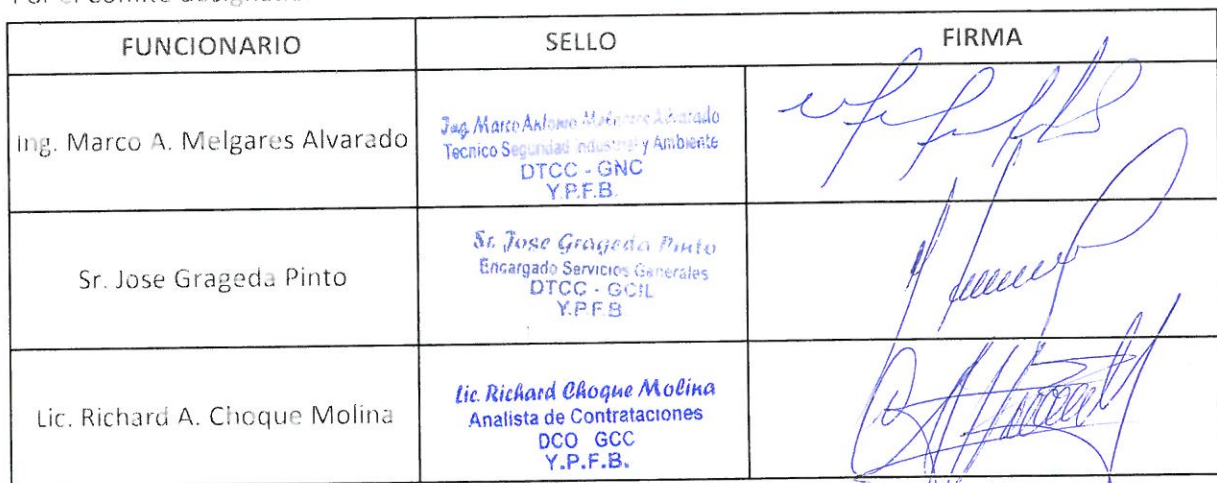 FUNCIONARIO SELLO FIRMA
Ing. Marco A. Melgares Alvarado
Ing. Marco Antonio Melgares Alvarado
Tecnico Seguridad Industrial y Ambiente
DTCC - GNC
Y.P.F.B.
Sr. Jose Grageda Pinto
Sr. Jose Grageda Pinto
Encargado Servicios Generales
DTCC - GCIL
Y.P.F.B
Lic. Richard A. Choque Molina
Lic. Richard Choque Molina
Analista de Contrataciones
DCO GCC
Y.P.F.B.